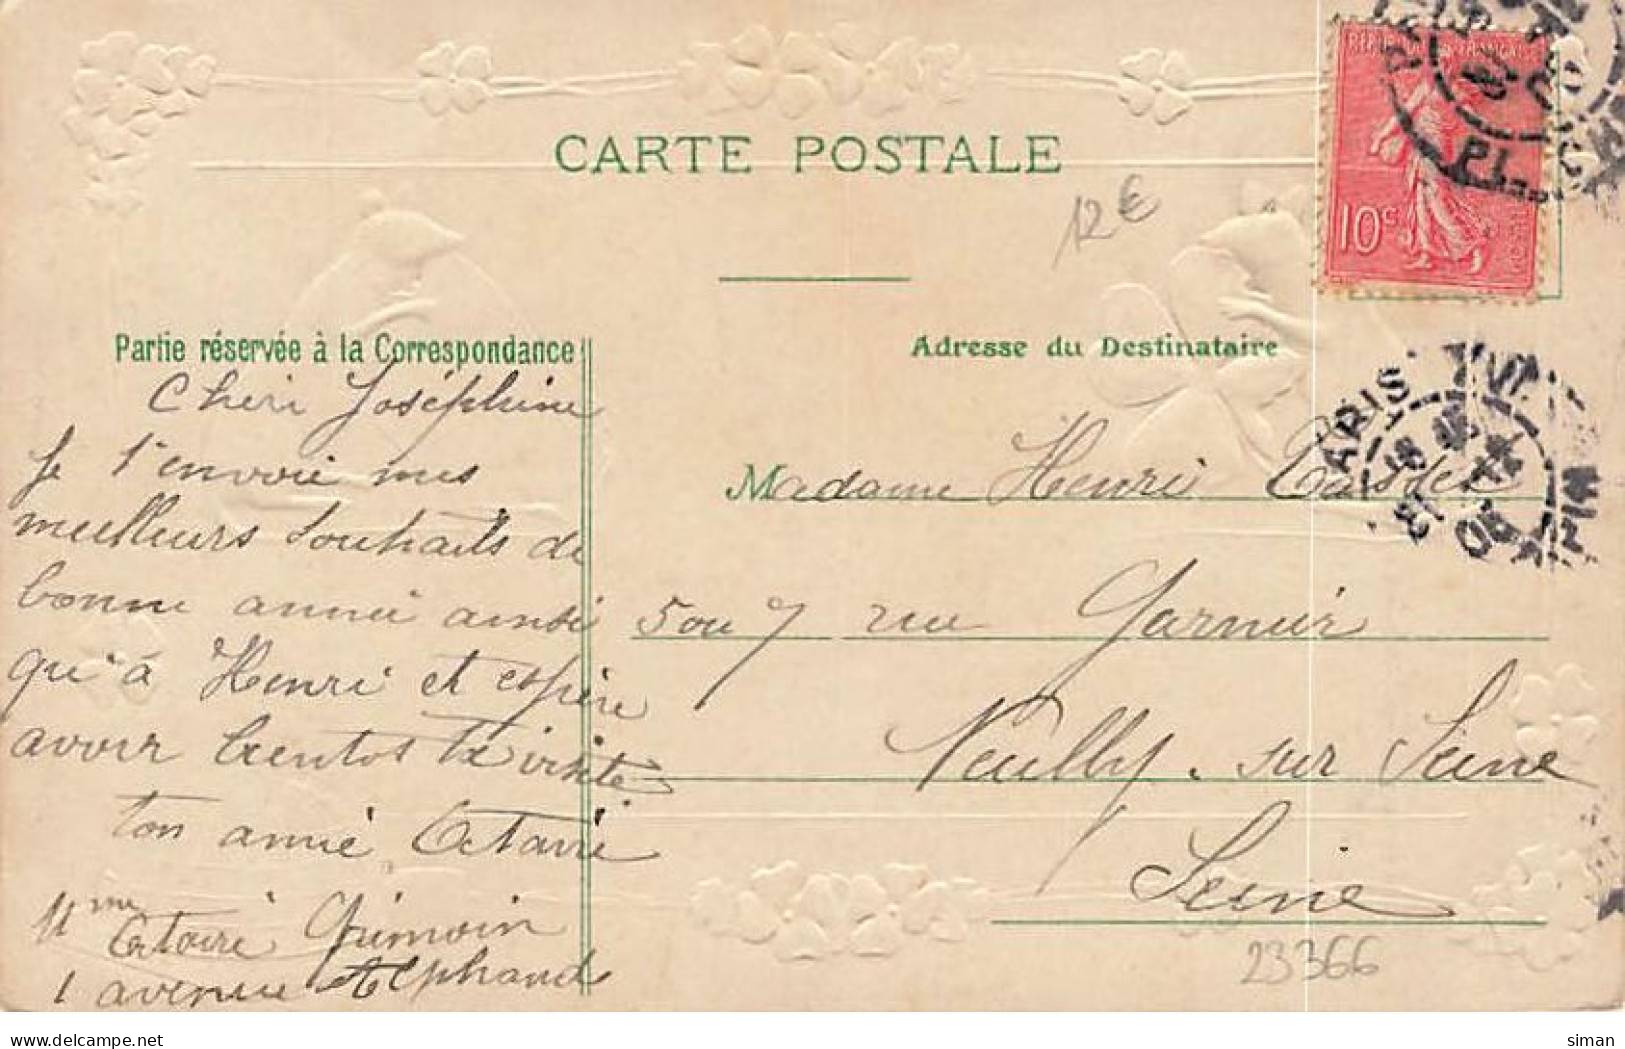 CARTE POSTALE
12€
10c
Partie réservée à la Correspondance
Adresse du Destinataire
PARIS
Cheri Joséphine
Je t'envoie mes
meilleurs souhaits de
bonne année ainsi
qu'à Henri et espère
avoir bientos ta visite
ton amie Octavie
Mme Octavie Grimoin
1 avenue Alphand
Madame Henri Tasset
5 ou 7 rue Garnier
Neuilly-sur Seine
Seine
23366
siman